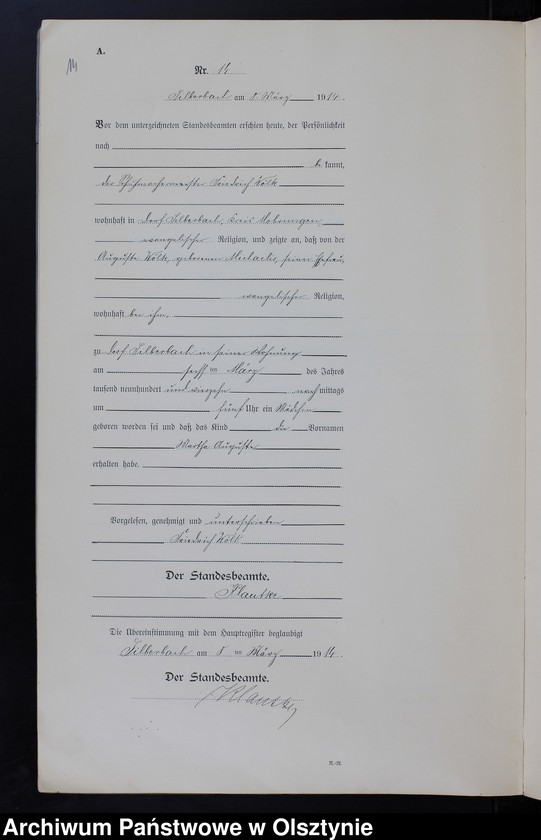 A.
14
Nr. 14
Silberbach am 8. März 1914.
Vor dem unterzeichneten Standesbeamten erschien heute, der Persönlichkeit
nach
be kannt,
der Schuhmachermeister Friedrich Kolk
wohnhaft in Dorf Silberbach, Kreis Mohrungen,
evangelischer Religion, und zeigte an, daß von der
Auguste Kolk, geborenen Michaelis, seiner Ehefrau,
evangelischer Religion,
wohnhaft bei ihm,
zu Dorf Silberbach in seiner Wohnung
am sechsten März des Jahres
tausend neunhundert und vierzehn nachmittags
um fünf Uhr ein Mädchen
geboren worden sei und daß das Kind die Vornamen
Martha Auguste
erhalten habe.
Vorgelesen, genehmigt und unterschrieben
Friedrich Kolk
Der Standesbeamte.
Die Übereinstimmung mit dem Hauptregister beglaubigt
Silberbach am 8ten März 1914.
Der Standesbeamte.
Archiwum Państwowe w Olsztynie